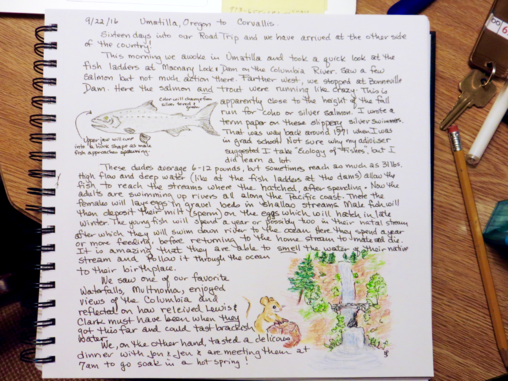 9/22/16 Umatilla, Oregon to Corvallis
Sixteen days into our Road Trip and we have arrived at the other side
of the country!
This morning we awoke in Umatilla and took a quick look at the
fish ladders at McNary Lock & Dam in the Columbia River. Saw a few
Salmon but not much action there. Farther west, we stopped at Bonneville
Dam. Here the salmon and trout were running like crazy. This is
Color will change from
silver to red & green
apparently close to the height of the fall
run for coho or silver salmon. I wrote a
term paper on these slippery silver swimmers.
That was way back around 1991 when I was
in grad school! Not sure why my adviser
suggested I take "Ecology of Fishes," but I
did learn a lot.
Upper jaw will curve
into a hook shape as male
fish approach spawning.
These dudes average 6-12 pounds, but sometimes reach as much as 31 lbs.
High flow and deep water (like at the fish ladders at the dams) allow the
fish to reach the streams where they hatched, after spending. Now the
adults are swimming up rivers all along the Pacific coast. There the
females will lay eggs in gravel beds in shallow streams. Male fish will
then deposit their milt (sperm) on the eggs which will hatch in late
winter. The young fish will spend a year or possibly two in their natal stream
after which they will swim down river to the ocean. Here they spend a year
or more feeding before returning to the home stream to mate and die.
It is amazing that they are able to smell the water of their native
stream and follow it through the ocean
to their birthplace.
We saw one of our favorite
waterfalls, Multnoma, enjoyed
views of the Columbia and
reflected on how relieved Lewis &
Clark must have been when they
got this far and could tast brackish
water.
We, on the other hand, tasted a delicious
dinner with Jon & Jen & are meeting them at
7am to go soak in a hot spring!